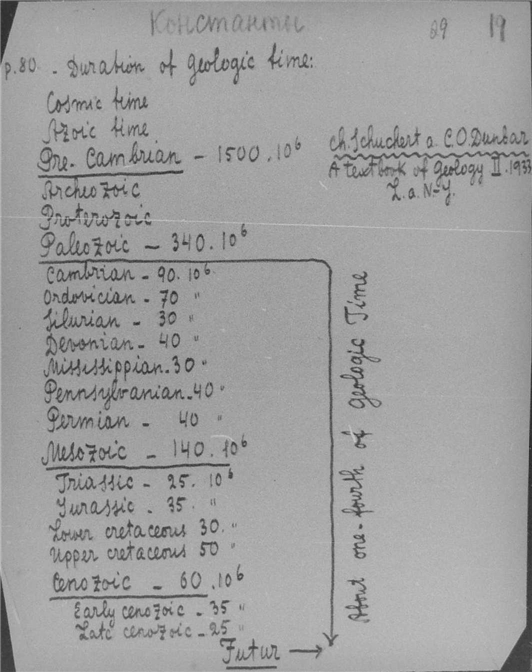 Константы
29 19
p.80. - Duration of geologic time:
Cosmic time
Azoic time
Pre-Cambrian - 1500.10⁶
Ch. Schuchert a. C.O. Dunbar
A textbook of geology II. 1933
L. a. N-Y.
Archeozoic
Proterozoic
Paleozoic - 340.10⁶
Cambrian - 90.10⁶
Ordovician - 70 "
Silurian - 30 "
Devonian - 40 "
Mississippian. 30 "
Pennsylvanian. 40 "
Permian - 40 "
Mesozoic - 140.10⁶
Triassic - 25.10⁶
Jurassic - 35. "
Lower cretaceous 30. "
Upper cretaceous 50 "
Cenozoic - 60.10⁶
Early cenozoic - 35 "
Late cenozoic - 25 "
Futur →
About one-fourth of geologic Time